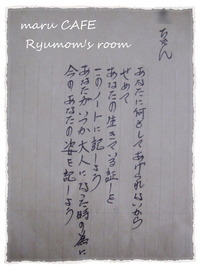 maru CAFE
Ryumom's room
ちゃん
あなたに何もしてあげられないから
せめて
あなたの生きている証しを
このノートに記しよう
あなたがいつか大人になった時の為に
今のあなたの姿を記しよう